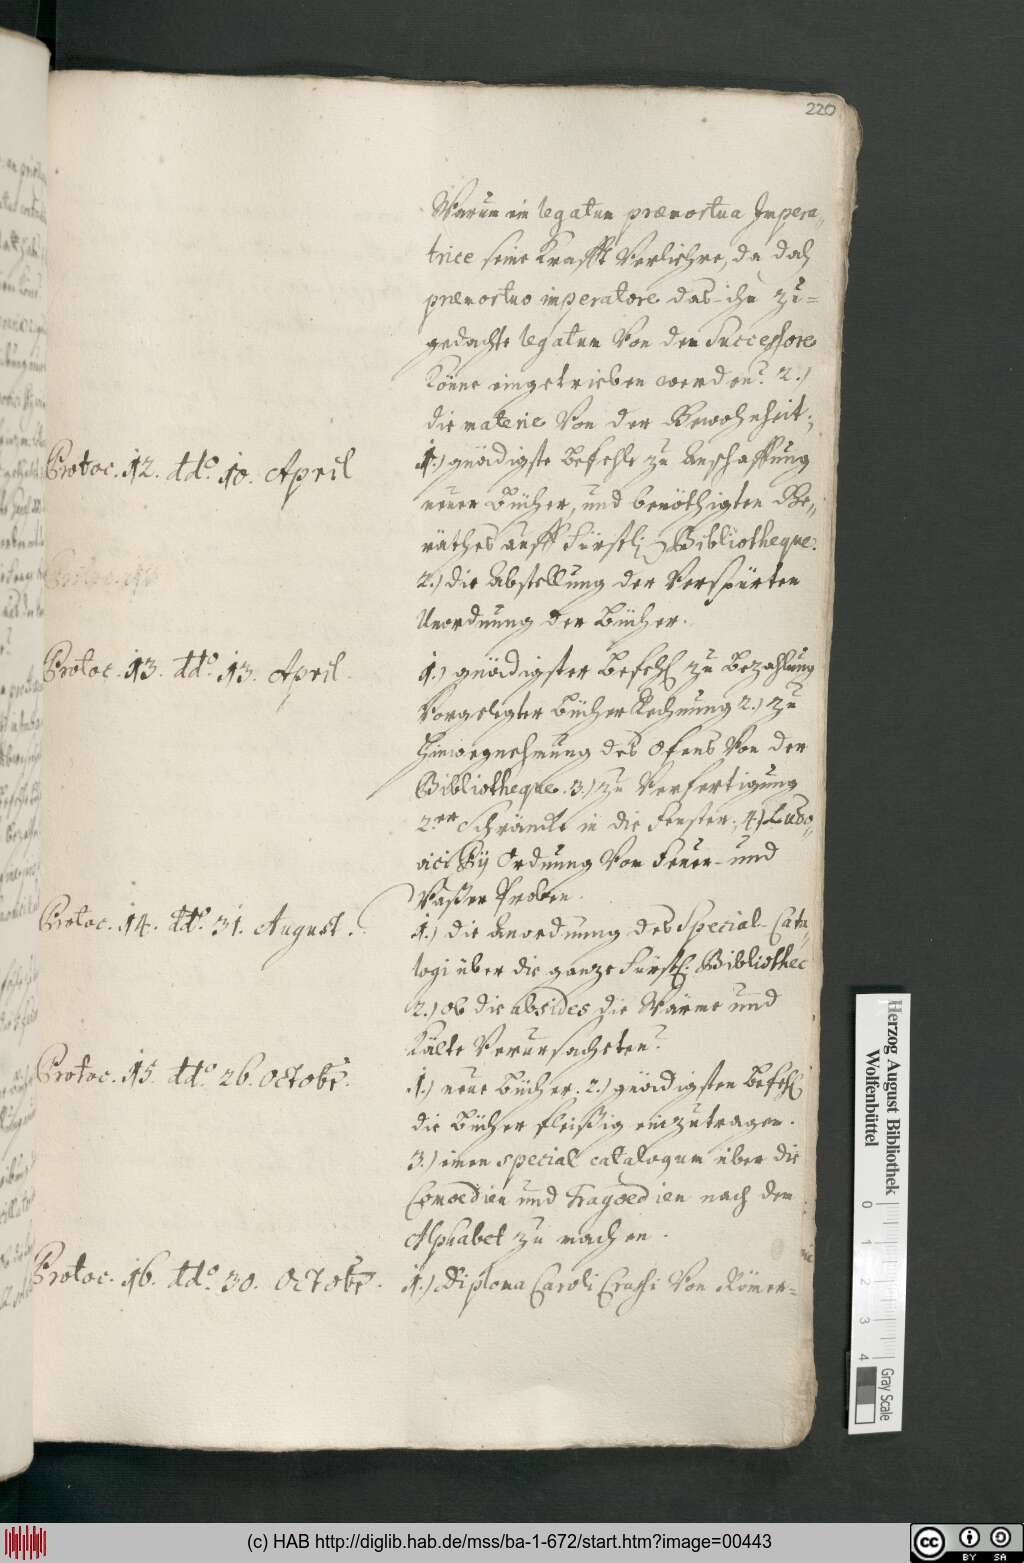 220
Warum ein legatum præmortua Impera„
trice seine Krafft verliehre, da doch
præmortuo imperatore das ihm zu=
gedachte legatum von dem Successore
könne eingetrieben werden? 2.)
die materie von der Gewohnheit.
Protoc. 12. dd.o 10. April
1.) gnädigste Befehle zu Anschaffung
neuer Bücher, und benöthigten Ge„
räthes auff Fürstl. Bibliotheque.
2.) die Abstellung der verspürten
Unordnung der Bücher.
Protoc. 13. dd.o 13. April.
1.) gnädigster Befehl zu Bezahlung
vorgelegter Bücher Rechnung 2.) zu
Hinwegnehmung des Ofens von der
Bibliotheque. 3.) zu Verfertigung
2.er Schräncke in die Fenster; 4) Ludo„
vici Ordnung von Feuer- und
Waßer Proben.
Protoc. 14. dd.o 31. August.
1.) die Anordnung des Special-Cata„
logi über die gantze Fürstl. Bibliothec
2.) ob die absides die Wärme und
Kälte verursacheten?
Protoc. 15. dd.o 26. Octobr.
1.) neue Bücher. 2.) gnädigsten Befehl
die Bücher fleißig einzutragen.
3.) einen special catalogum über die
Comoedien und Tragoedien nach dem
Alphabet zu machen.
Protoc. 16. dd.o 30. Octobr.
1.) Diploma Caroli Crassi von Römer=
Herzog August Bibliothek
Wolfenbüttel
0 1 2 3 4
Gray Scale
(c) HAB http://diglib.hab.de/mss/ba-1-672/start.htm?image=00443
cc BY SA